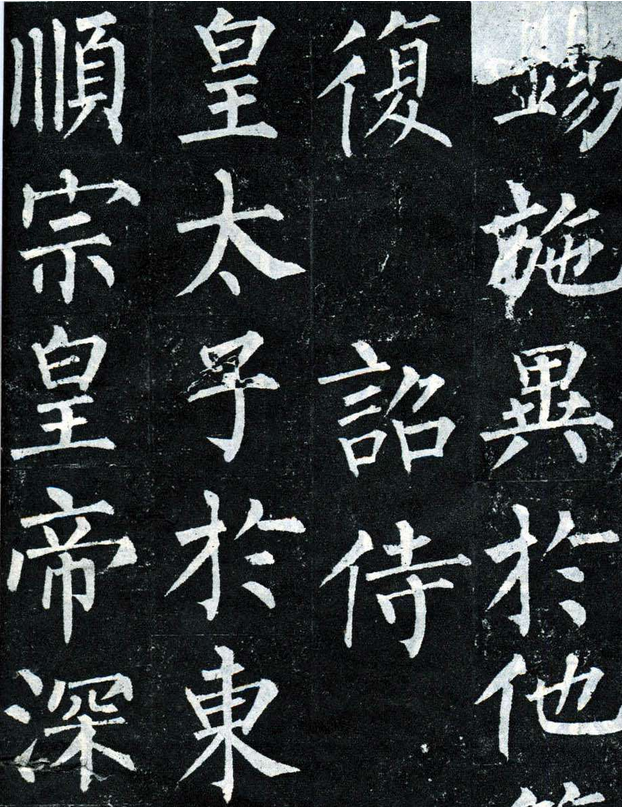 錫施異於他
復詔侍
皇太子於東
順宗皇帝深